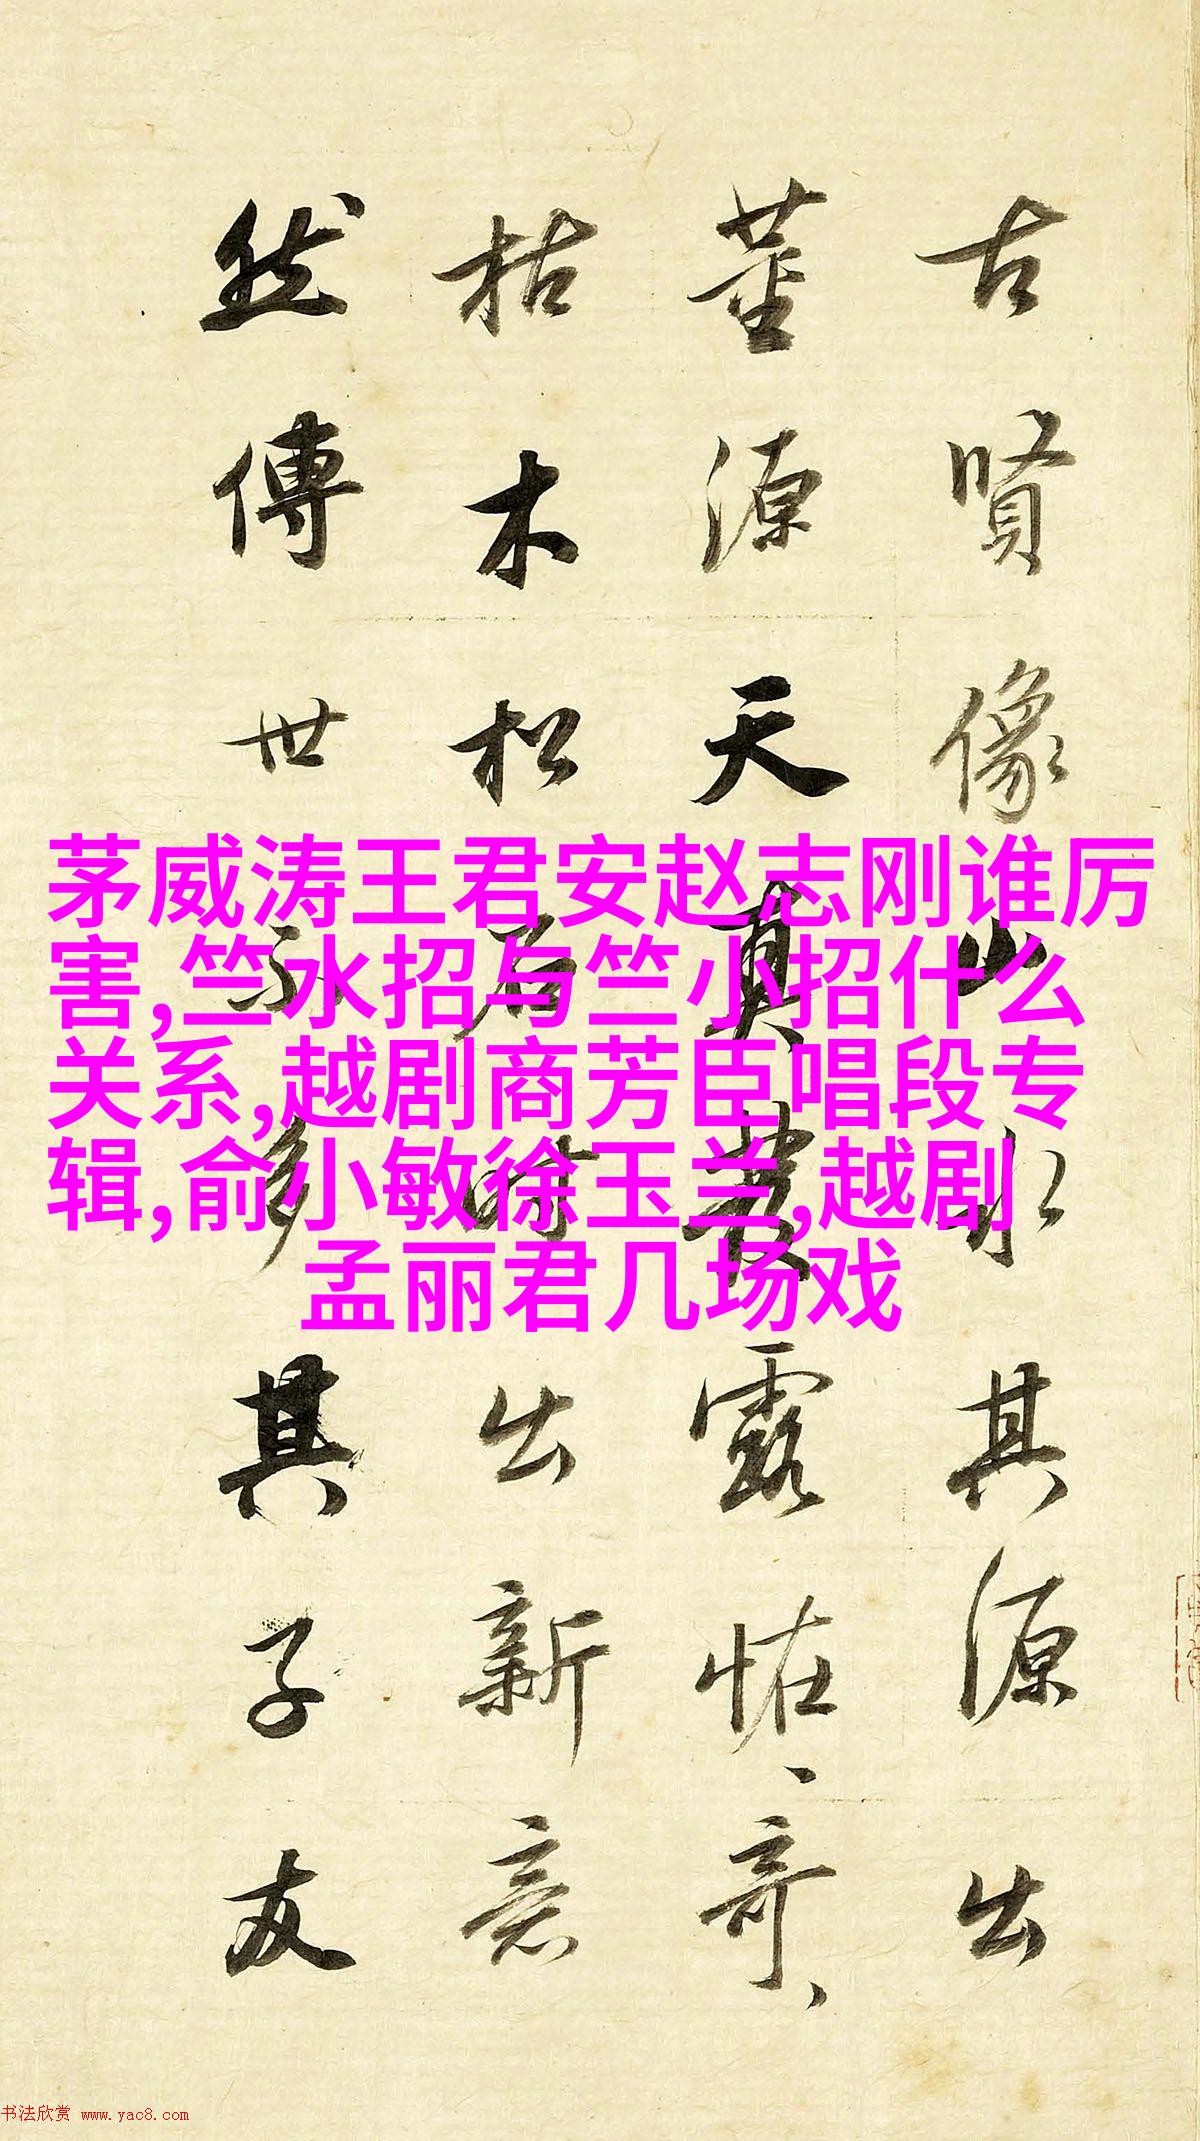 古賢像山水其源出
董源天真叢露怪奇
枯木松石時出新意
然傳世不多其子友
茅威涛王君安赵志刚谁厉
害,竺水招与竺小招什么
关系,越剧商芳臣唱段专
辑,俞小敏徐玉兰,越剧
孟丽君几场戏
书法欣赏 www.yac8.com